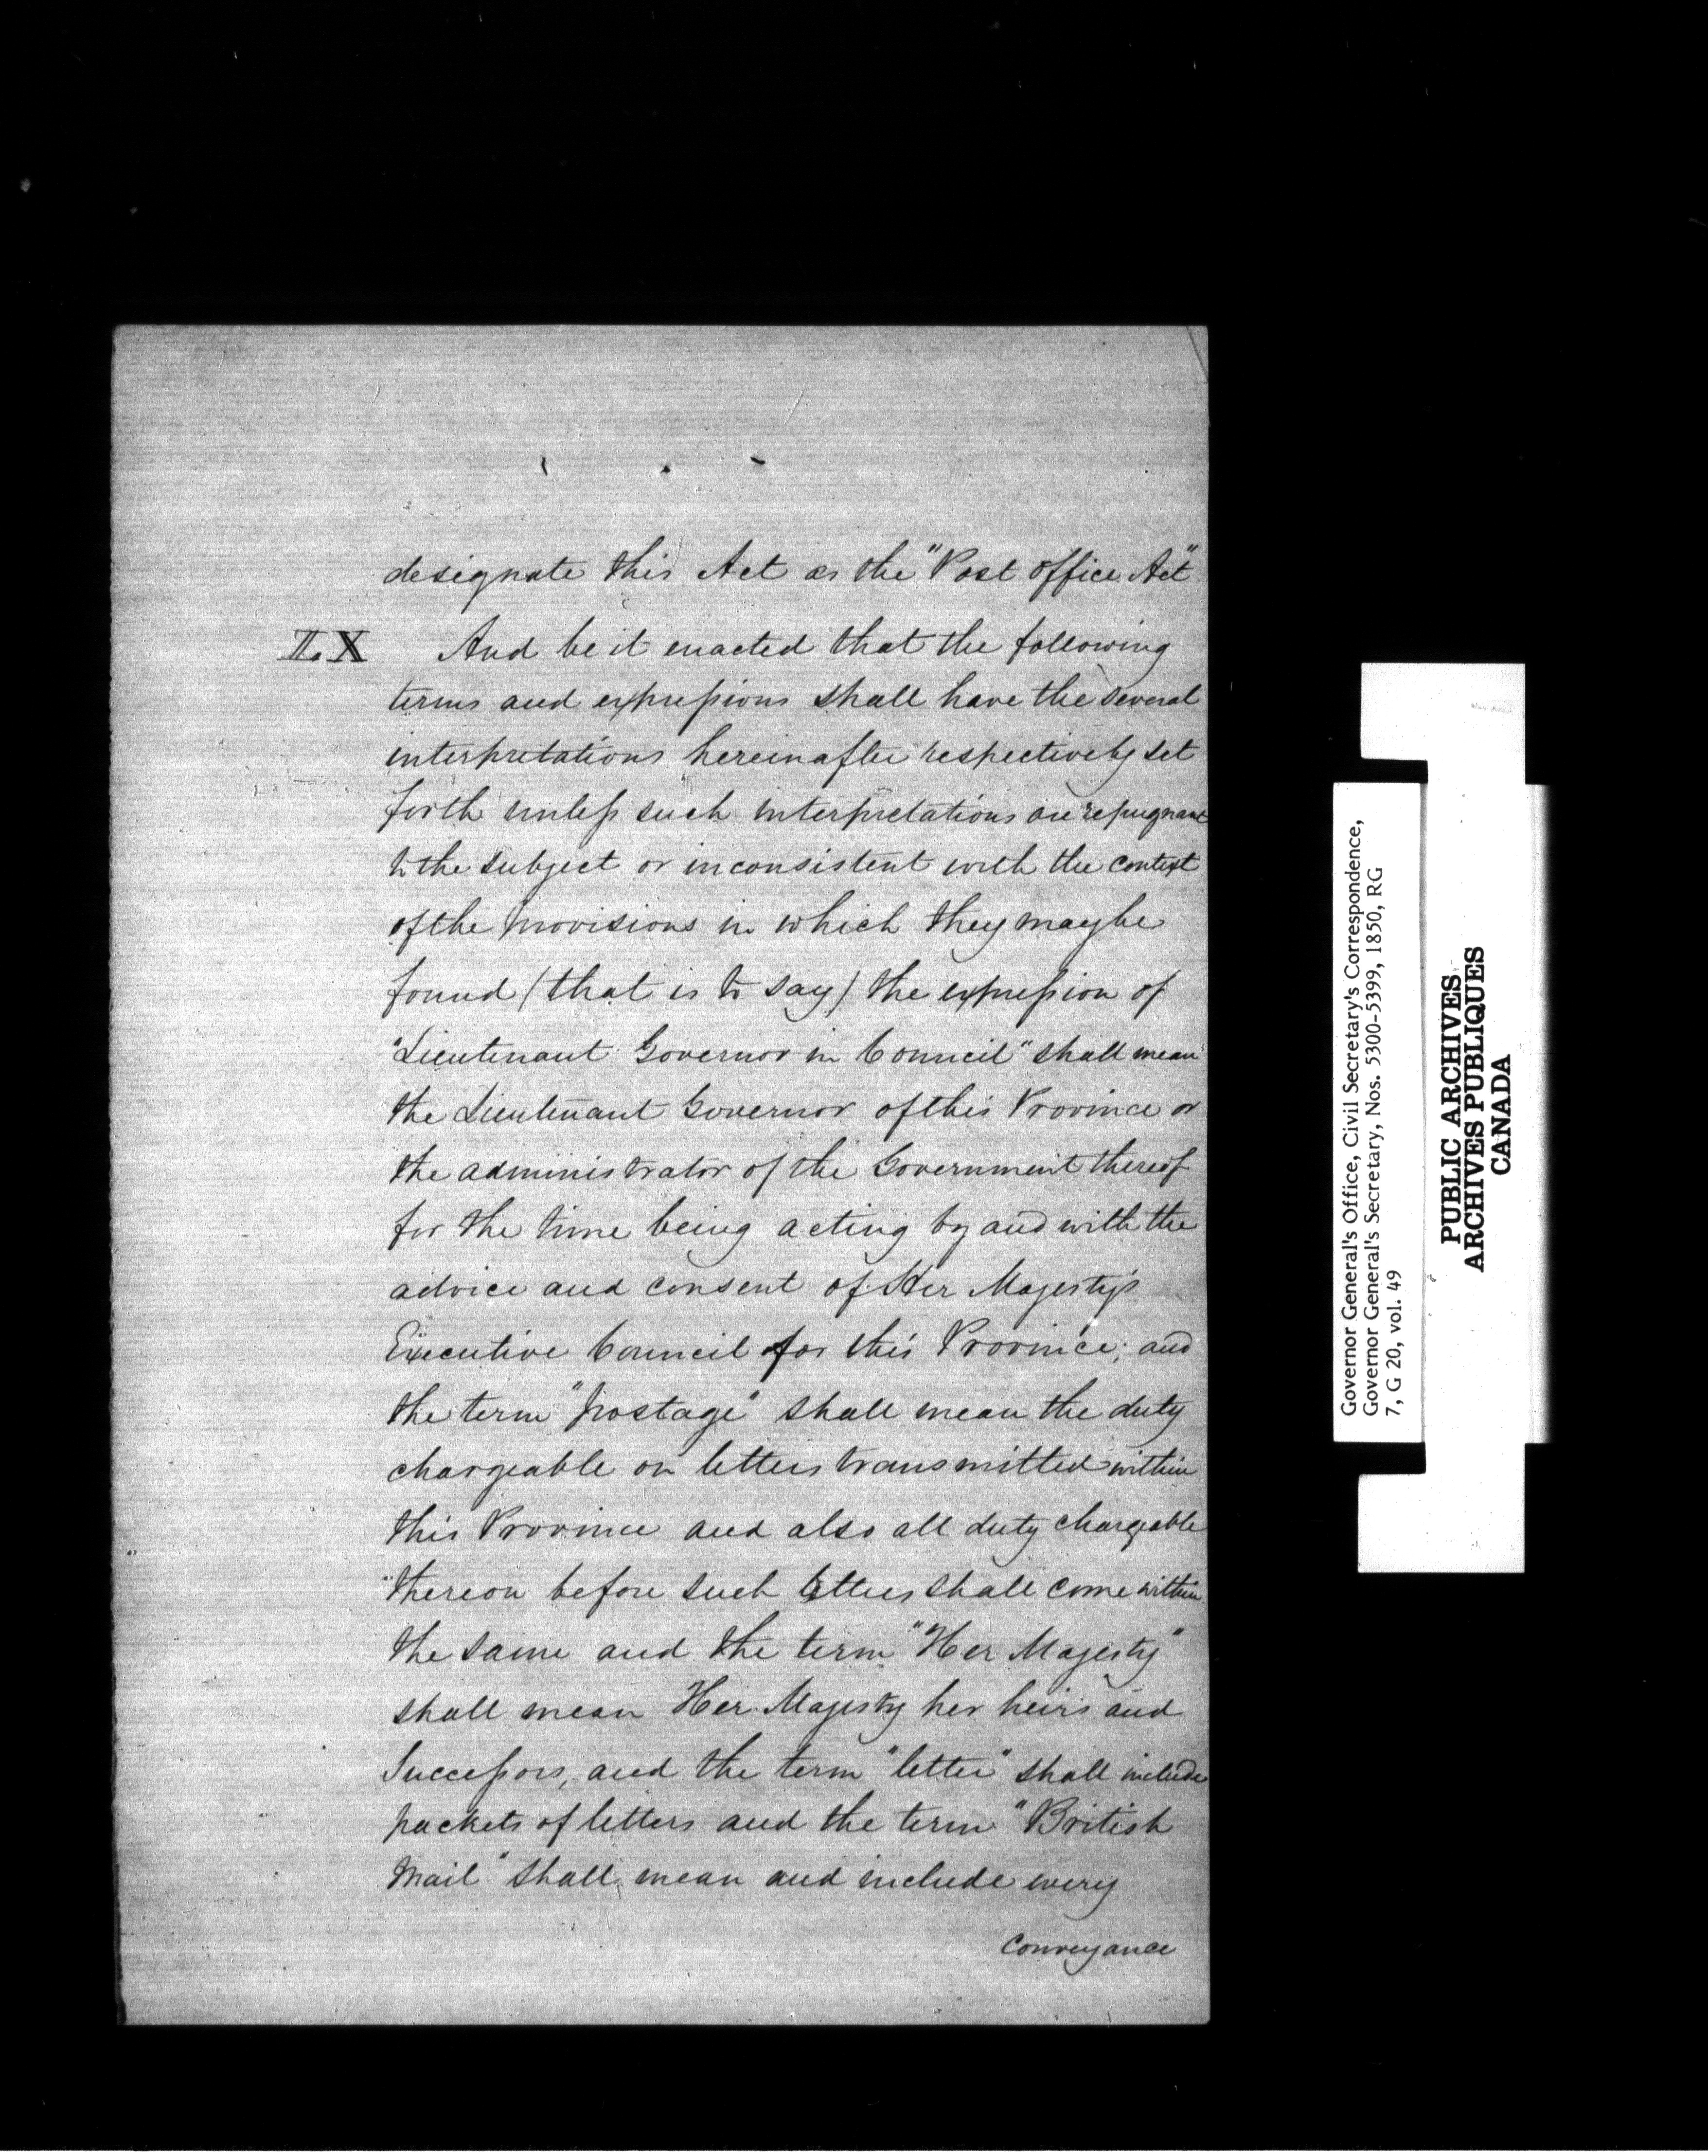 designate this Act as the "Post Office Act"
II. X And be it enacted that the following
terms and expressions shall have the several
interpretations hereinafter respectively set
forth unless such interpretations are repugnant
to the subject or inconsistent with the context
of the provisions in which they may be
found (that is to say) the expression of
"Lieutenant Governor in Council" shall mean
the Lieutenant Governor of this Province or
the administrator of the Government thereof
for the time being acting by and with the
advice and consent of Her Majesty's
Executive Council for this Province; and
the term "postage" shall mean the duty
chargeable on letters transmitted within
this Province and also all duty chargeable
thereon before such letters shall come within
the same and the term "Her Majesty"
shall mean Her Majesty her heirs and
Successors, and the term "letter" shall include
packets of letters and the term "British
Mail" shall mean and include every
Conveyance
Governor General's Office, Civil Secretary's Correspondence,
Governor General's Secretary, Nos. 5300-5399, 1850, RG
7, G 20, vol. 49
PUBLIC ARCHIVES
ARCHIVES PUBLIQUES
CANADA